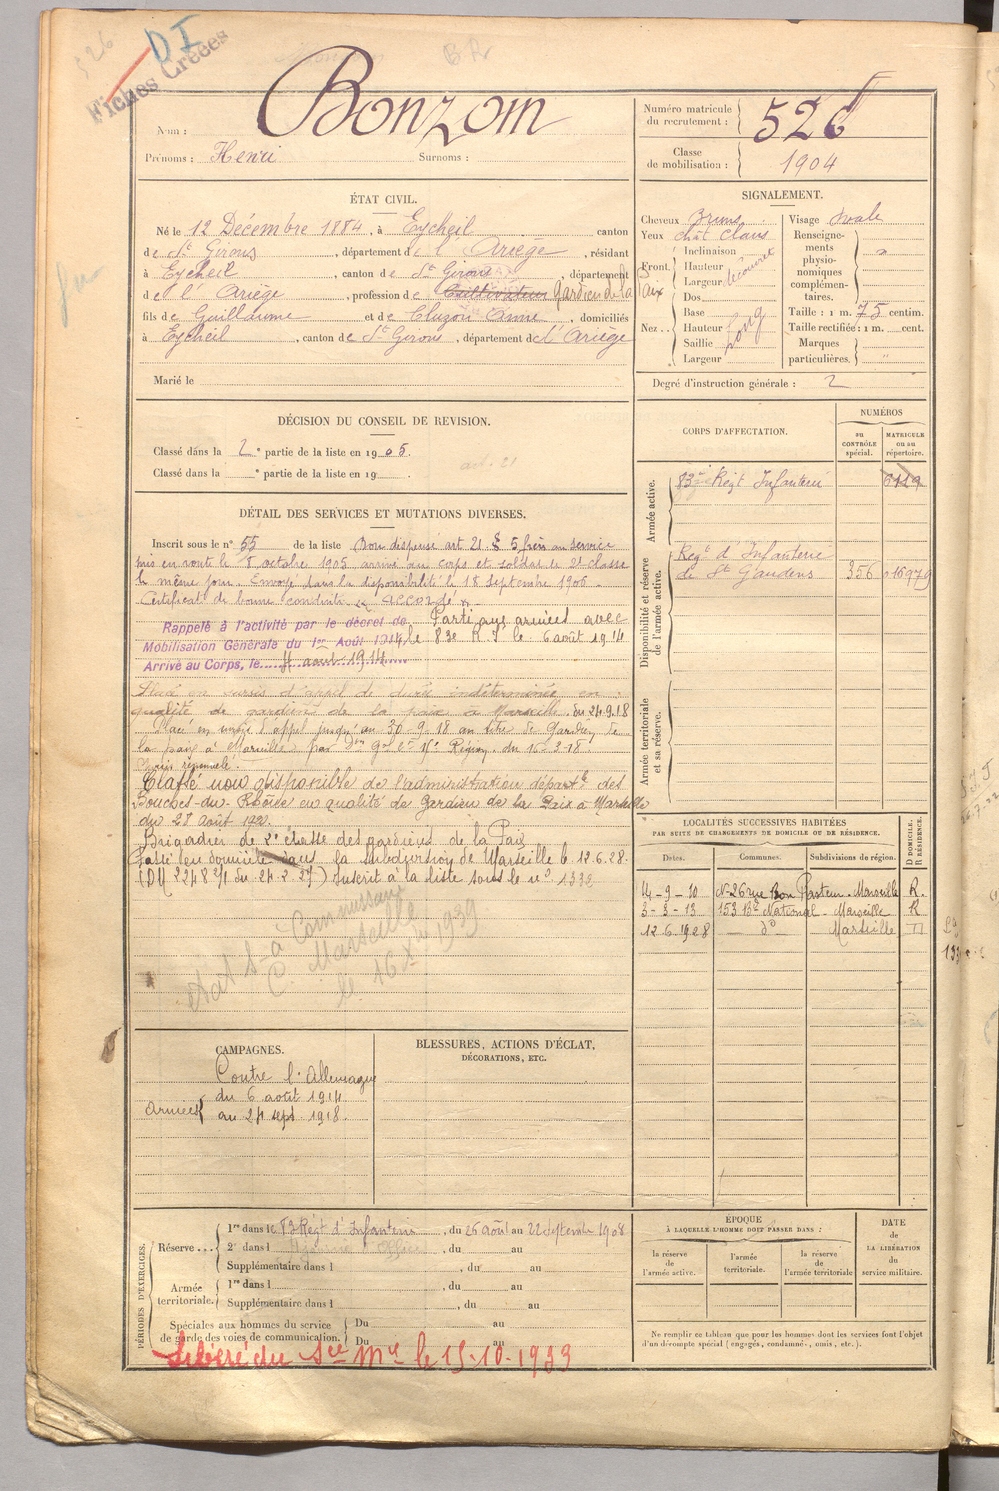 526
DI
Fiches Créées
B. R.
Nom : Bonzom
Prénoms : Henri Surnoms :
Numéro matricule du recrutement : 526
Classe de mobilisation : 1904
ÉTAT CIVIL.
Né le 12 Décembre 1884, à Eycheil canton
de St Girons, département de l'Ariège, résidant
à Eycheil, canton de St Girons, département
de l'Ariège, profession de Cultivateur Gardien de la Paix
fils de Guillaume et de Cluzon Anne, domiciliés
à Eycheil, canton de St Girons, département de l'Ariège
Marié le
SIGNALEMENT.
Cheveux Bruns
Yeux chât clairs
Front. Inclinaison
Hauteur
Largeur
découvert
Nez.. Dos
Base
Hauteur
Saillie
Largeur
long
Visage ovale
Renseignements physionomiques complémentaires. "
Taille : 1 m. 75 centim.
Taille rectifiée : 1 m. cent.
Marques particulières. "
Degré d'instruction générale : 2
DÉCISION DU CONSEIL DE REVISION.
Classé dans la 2e partie de la liste en 1905.
Classé dans la e partie de la liste en 19 .
art. 21
CORPS D'AFFECTATION.
NUMÉROS
au CONTRÔLE spécial.
MATRICULE ou au répertoire.
Armée active.
83me Régt Infanterie 6119
Disponibilité et réserve de l'armée active.
Régt d'Infanterie
de St Gaudens 356 016979
Armée territoriale et sa réserve.
DÉTAIL DES SERVICES ET MUTATIONS DIVERSES.
Inscrit sous le n° 55 de la liste Bon dispensé art 21. § 5 frère au service
mis en route le 8 octobre 1905 arrivé au corps et soldat de 2e classe
le même jour. Envoyé dans la disponibilité le 18 Septembre 1906.
Certificat de bonne conduite "accordé"
Rappelé à l'activité par le décret de
Mobilisation Générale du 1er Août 1914,
Arrivé au Corps, le 4 août 1914
Parti aux armées avec
le 83e R. I. le 6 août 1914
Placé en sursis d'appel de durée indéterminée en
qualité de gardien de la paix à Marseille. du 24.9.18
Placé en sursis d'appel jusqu'au 30.9.18 au titre de Gardien de
la paix à Marseille par Gal 15e Région. du
Classé non disponible de l'administration départle des
Bouches-du-Rhône en qualité de Gardien de la Paix à Marseille
du 28 août 1920.
Brigadier de 2e classe des gardiens de la Paix
Passé en domicile dans la subdivision de Marseille le 12.6.28.
(DM 2248 2/1 du 24.2.27) Inscrit à la liste sous le n° 1332
à Commissaire
C. Marseille
le 16 Xbre 1939
LOCALITÉS SUCCESSIVES HABITÉES
PAR SUITE DE CHANGEMENTS DE DOMICILE OU DE RÉSIDENCE.
Dates. Communes. Subdivisions de région. D DOMICILE. R RÉSIDENCE.
14-9-10 N° 26 rue Bon Pasteur - Marseille R.
3-3-13 153 Bd National - Marseille R
12.6.1928 d° Marseille D
CAMPAGNES.
Contre l'Allemagne
Armées du 6 août 1914
au 24 sept 1918.
BLESSURES, ACTIONS D'ÉCLAT,
DÉCORATIONS, ETC.
PÉRIODES D'EXERCICES.
Réserve... 1re dans le 83 Régt d'Infanterie, du 26 août au 22 septembre 1908
2e dans l , du au
Supplémentaire dans l , du au
Armée territoriale. 1re dans l , du au
Supplémentaire dans l , du au
Spéciales aux hommes du service Du au
de garde des voies de communication. Du au
Libéré du Sce Mre le 15-10-1933
ÉPOQUE
À LAQUELLE L'HOMME DOIT PASSER DANS :
la réserve de l'armée active.
l'armée territoriale.
la réserve de l'armée territoriale
DATE
de
LA LIBÉRATION
du
service militaire.
Ne remplir ce tableau que pour les hommes dont les services font l'objet
d'un décompte spécial (engagés, condamnés, omis, etc.).